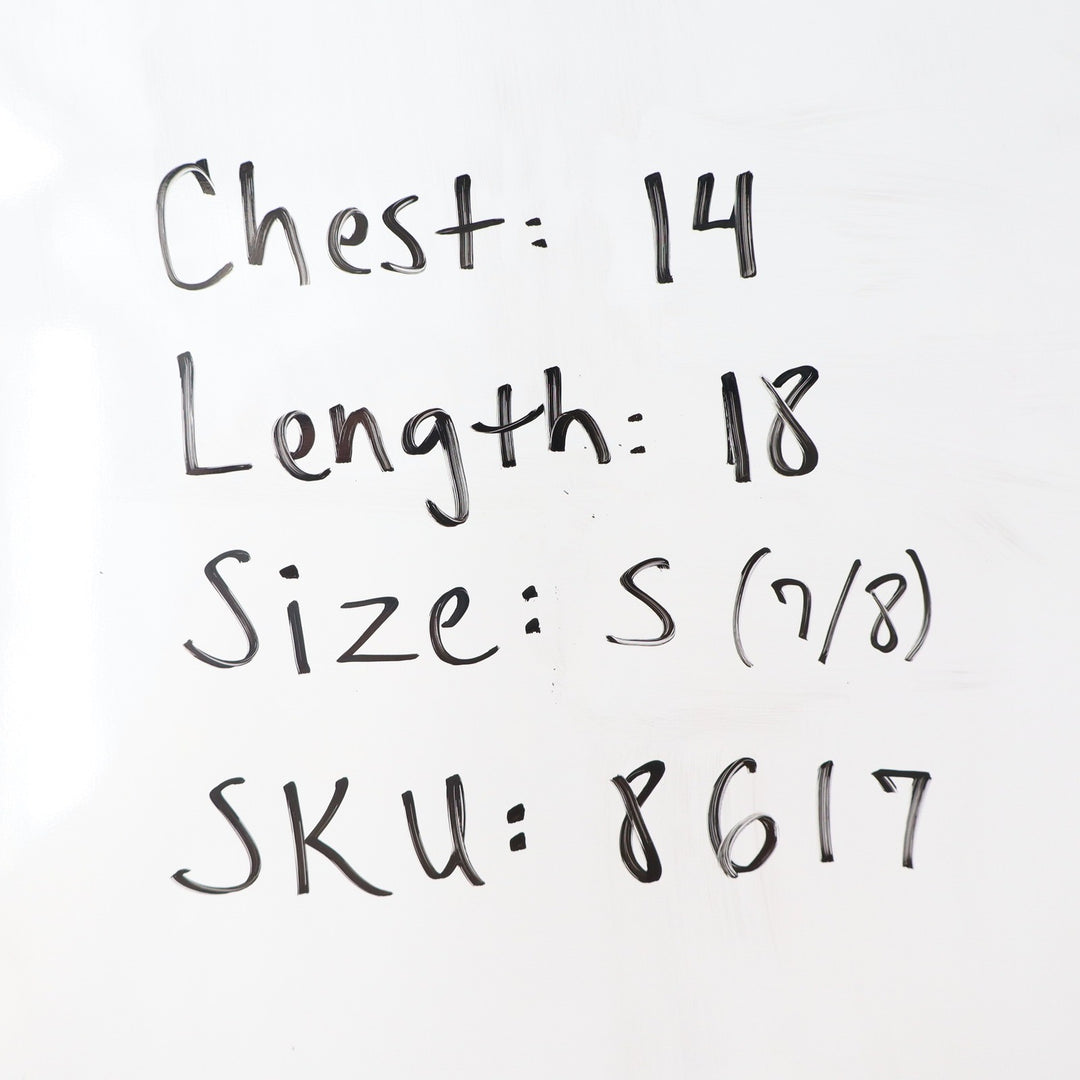 Chest: 14
Length: 18
Size: S (7/8)
SKU: 8617